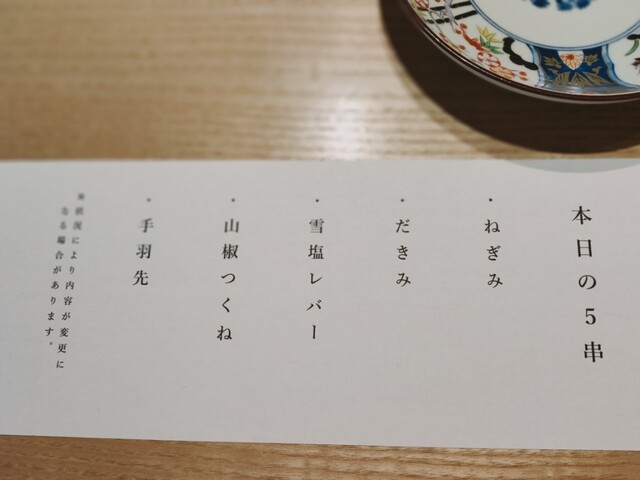 本日の5串
・ねぎみ
・だきみ
・雪塩レバー
・山椒つくね
・手羽先
※状況により内容が変更に
なる場合があります。